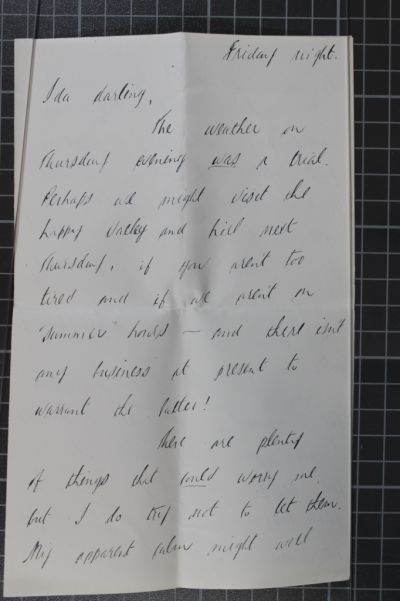 Friday night.
Ida darling,
The weather on
Thursday evening was a trial.
Perhaps we might visit the
happy valley and hill next
Thursday, if you aren't too
tired and if we aren't on
"summer" hours — and there isn't
any business at present to
warrant the latter!
There are plenty
of things that could worry me,
but I do try not to let them.
My apparent calm might well